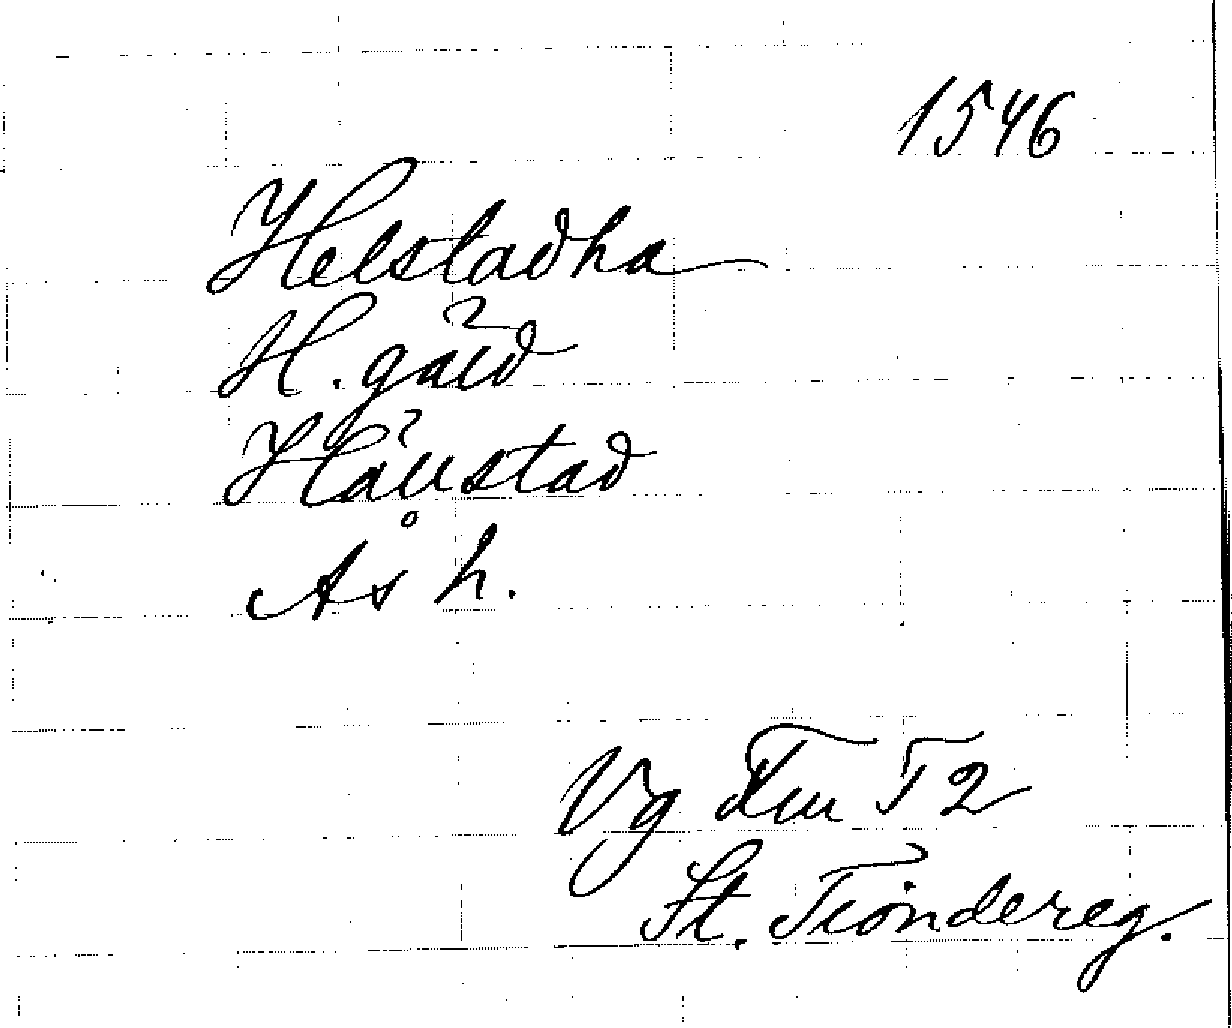 1546
Helstadha
H. gäld
Hällstad
Ås h.
Vg T2
St. Tiondereg.